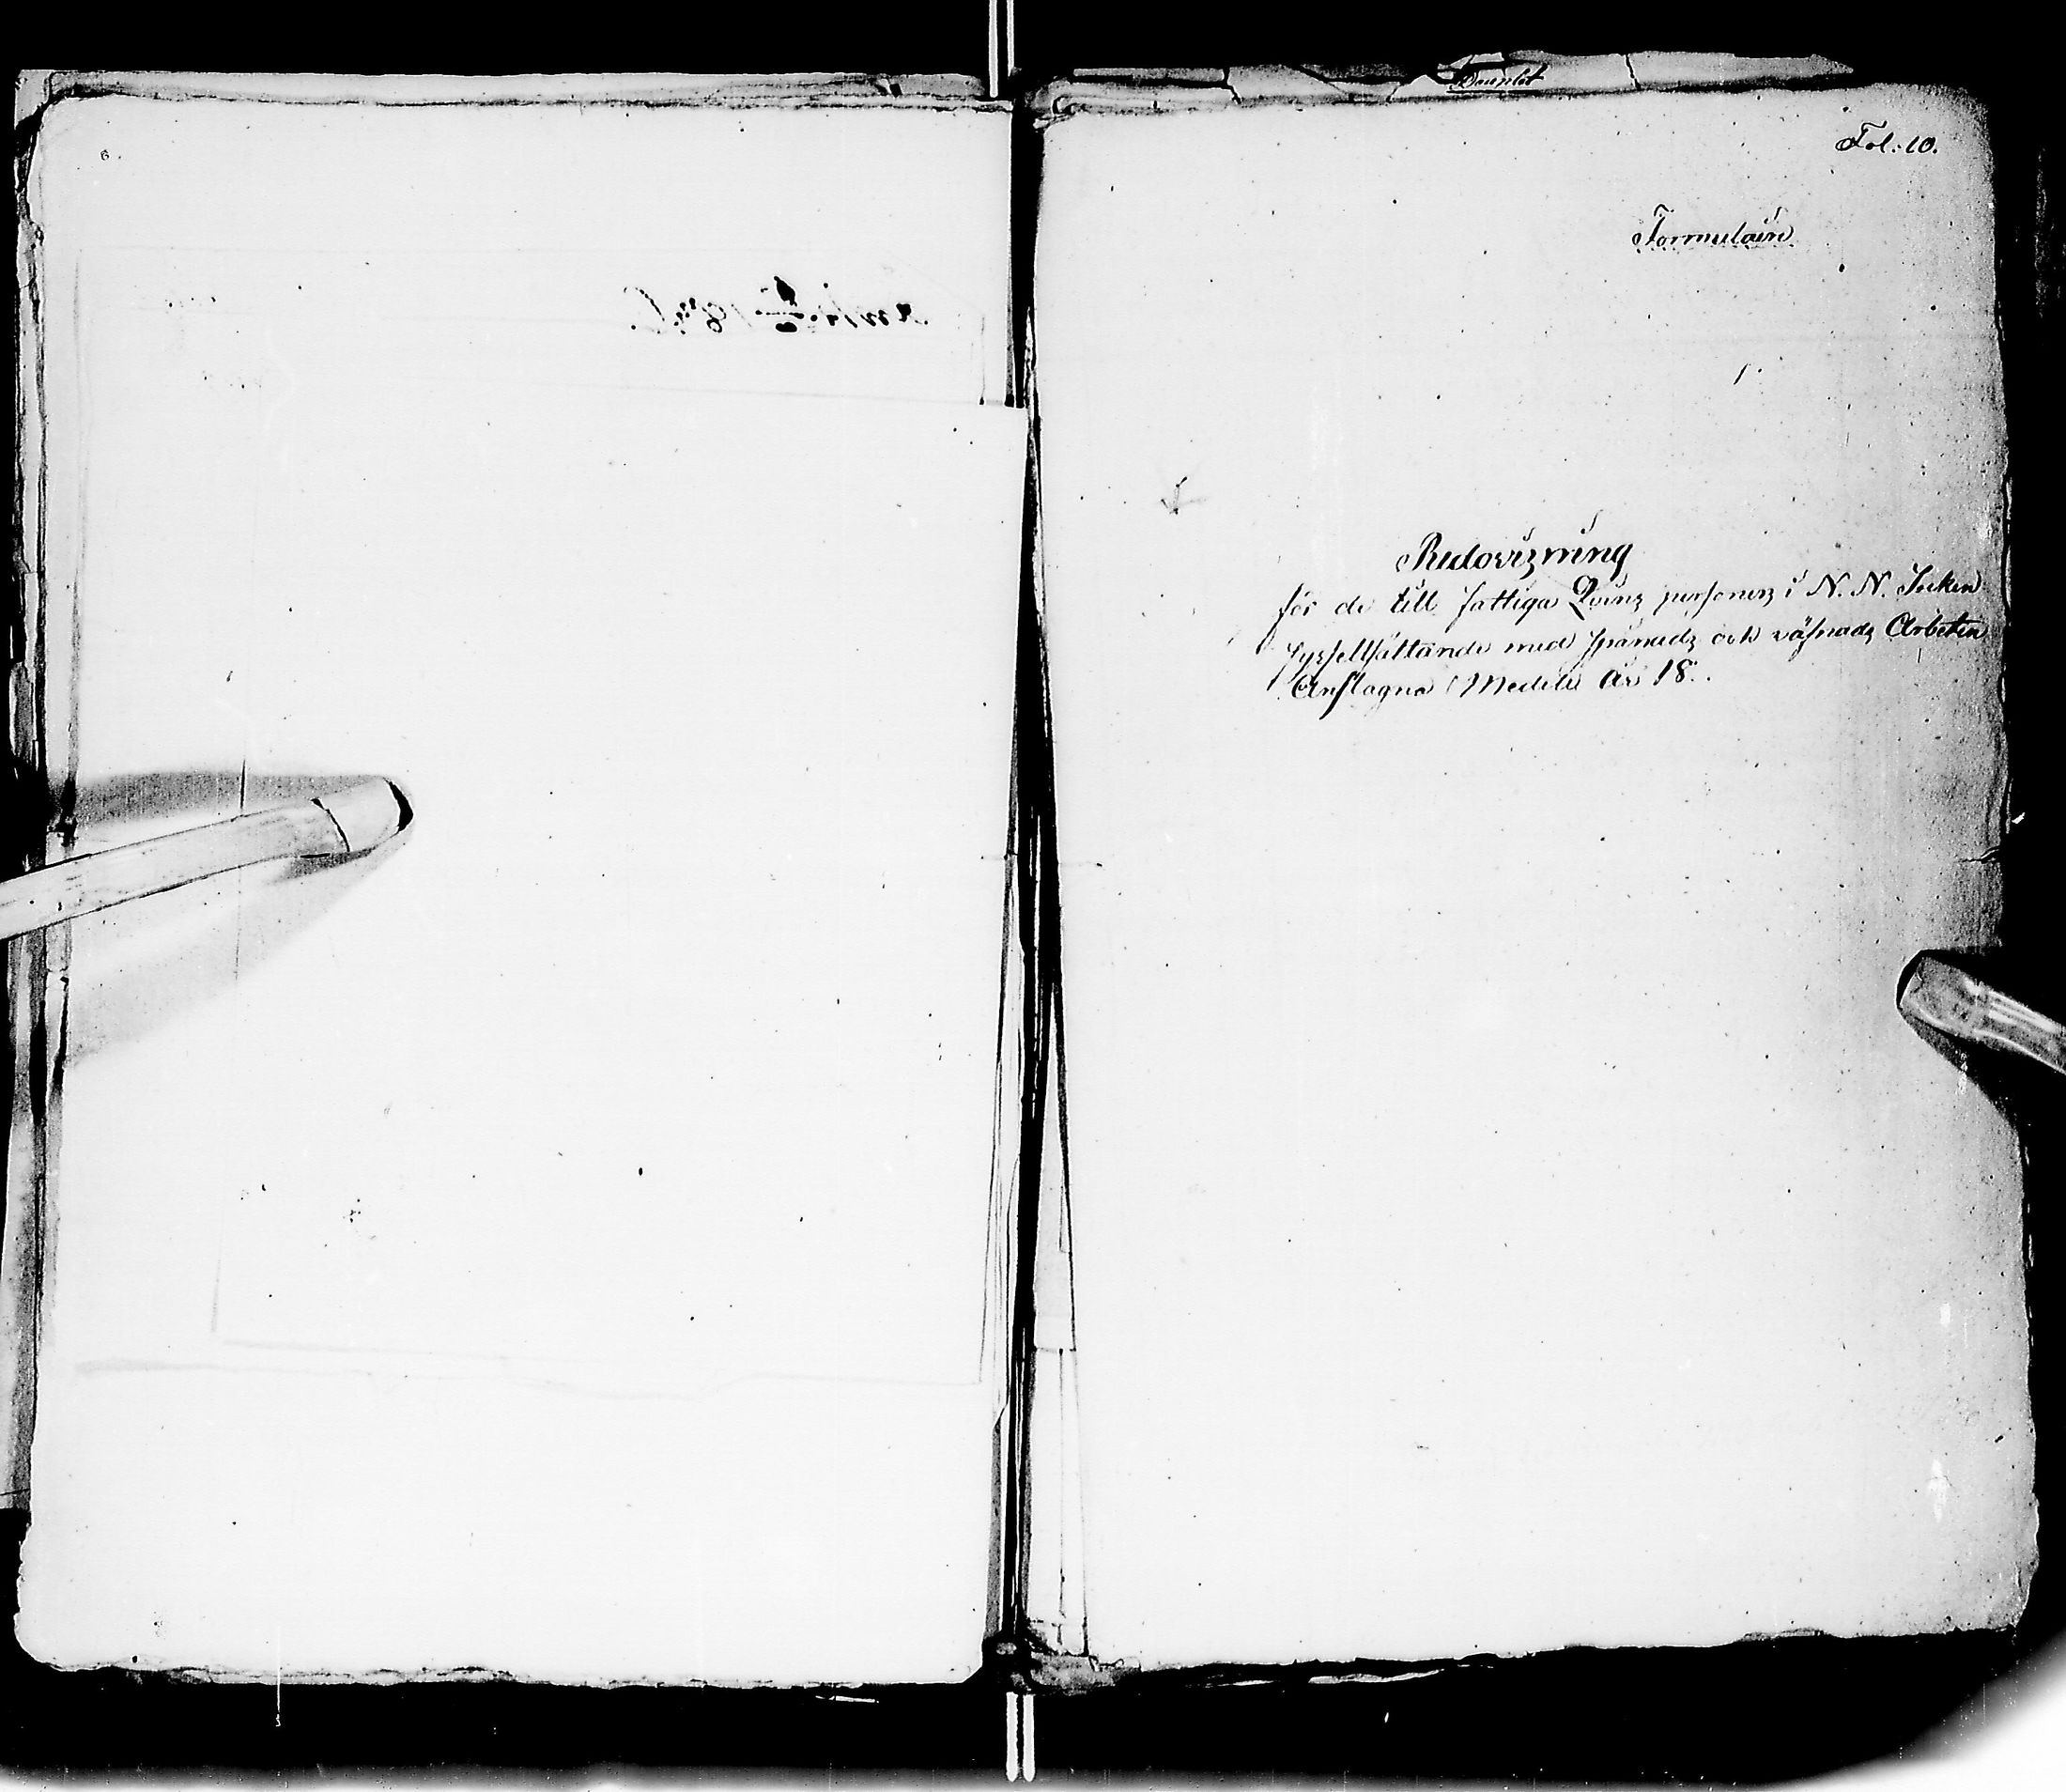 Fol: 10.
Formulair
Redovizning
för de till fattiga Qvins personers i N. N. Socken
sysselsättande med spånads och väfnads Arbeten
Anslagna Medel År 18 .